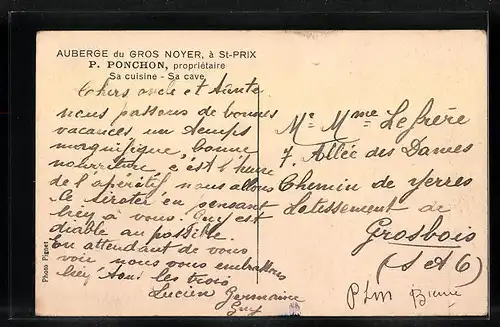 AUBERGE du GROS NOYER, à St-PRIX
P. PONCHON, propriétaire
Sa cuisine - Sa cave
Chers oncle et tante
nous passons de bonnes
vacances, un temps
magnifique, bonne
nourriture, c'est l'heure
de l'apéritif, nous allons
le siroter en pensant
bien à vous. Guy est
diable au possible.
En attendant de vous
voir nous vous embrassons
bien tous les trois
Lucien Germaine
Guy
Mr Mme Lefrère
7. Allée des Dames
Chemin de Yerres
Lotissement de
Grosbois
(S et O)
PLM
Photo Pignet